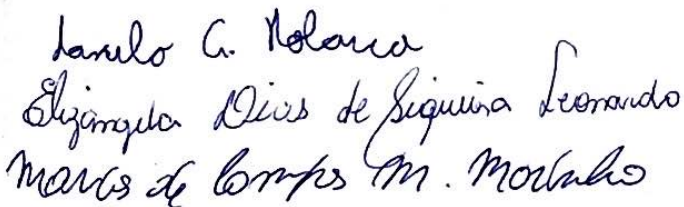 Danilo G. Molarca
Elizangela Dias de Siqueira Leonardo
Marcos de Campos M. Marinho